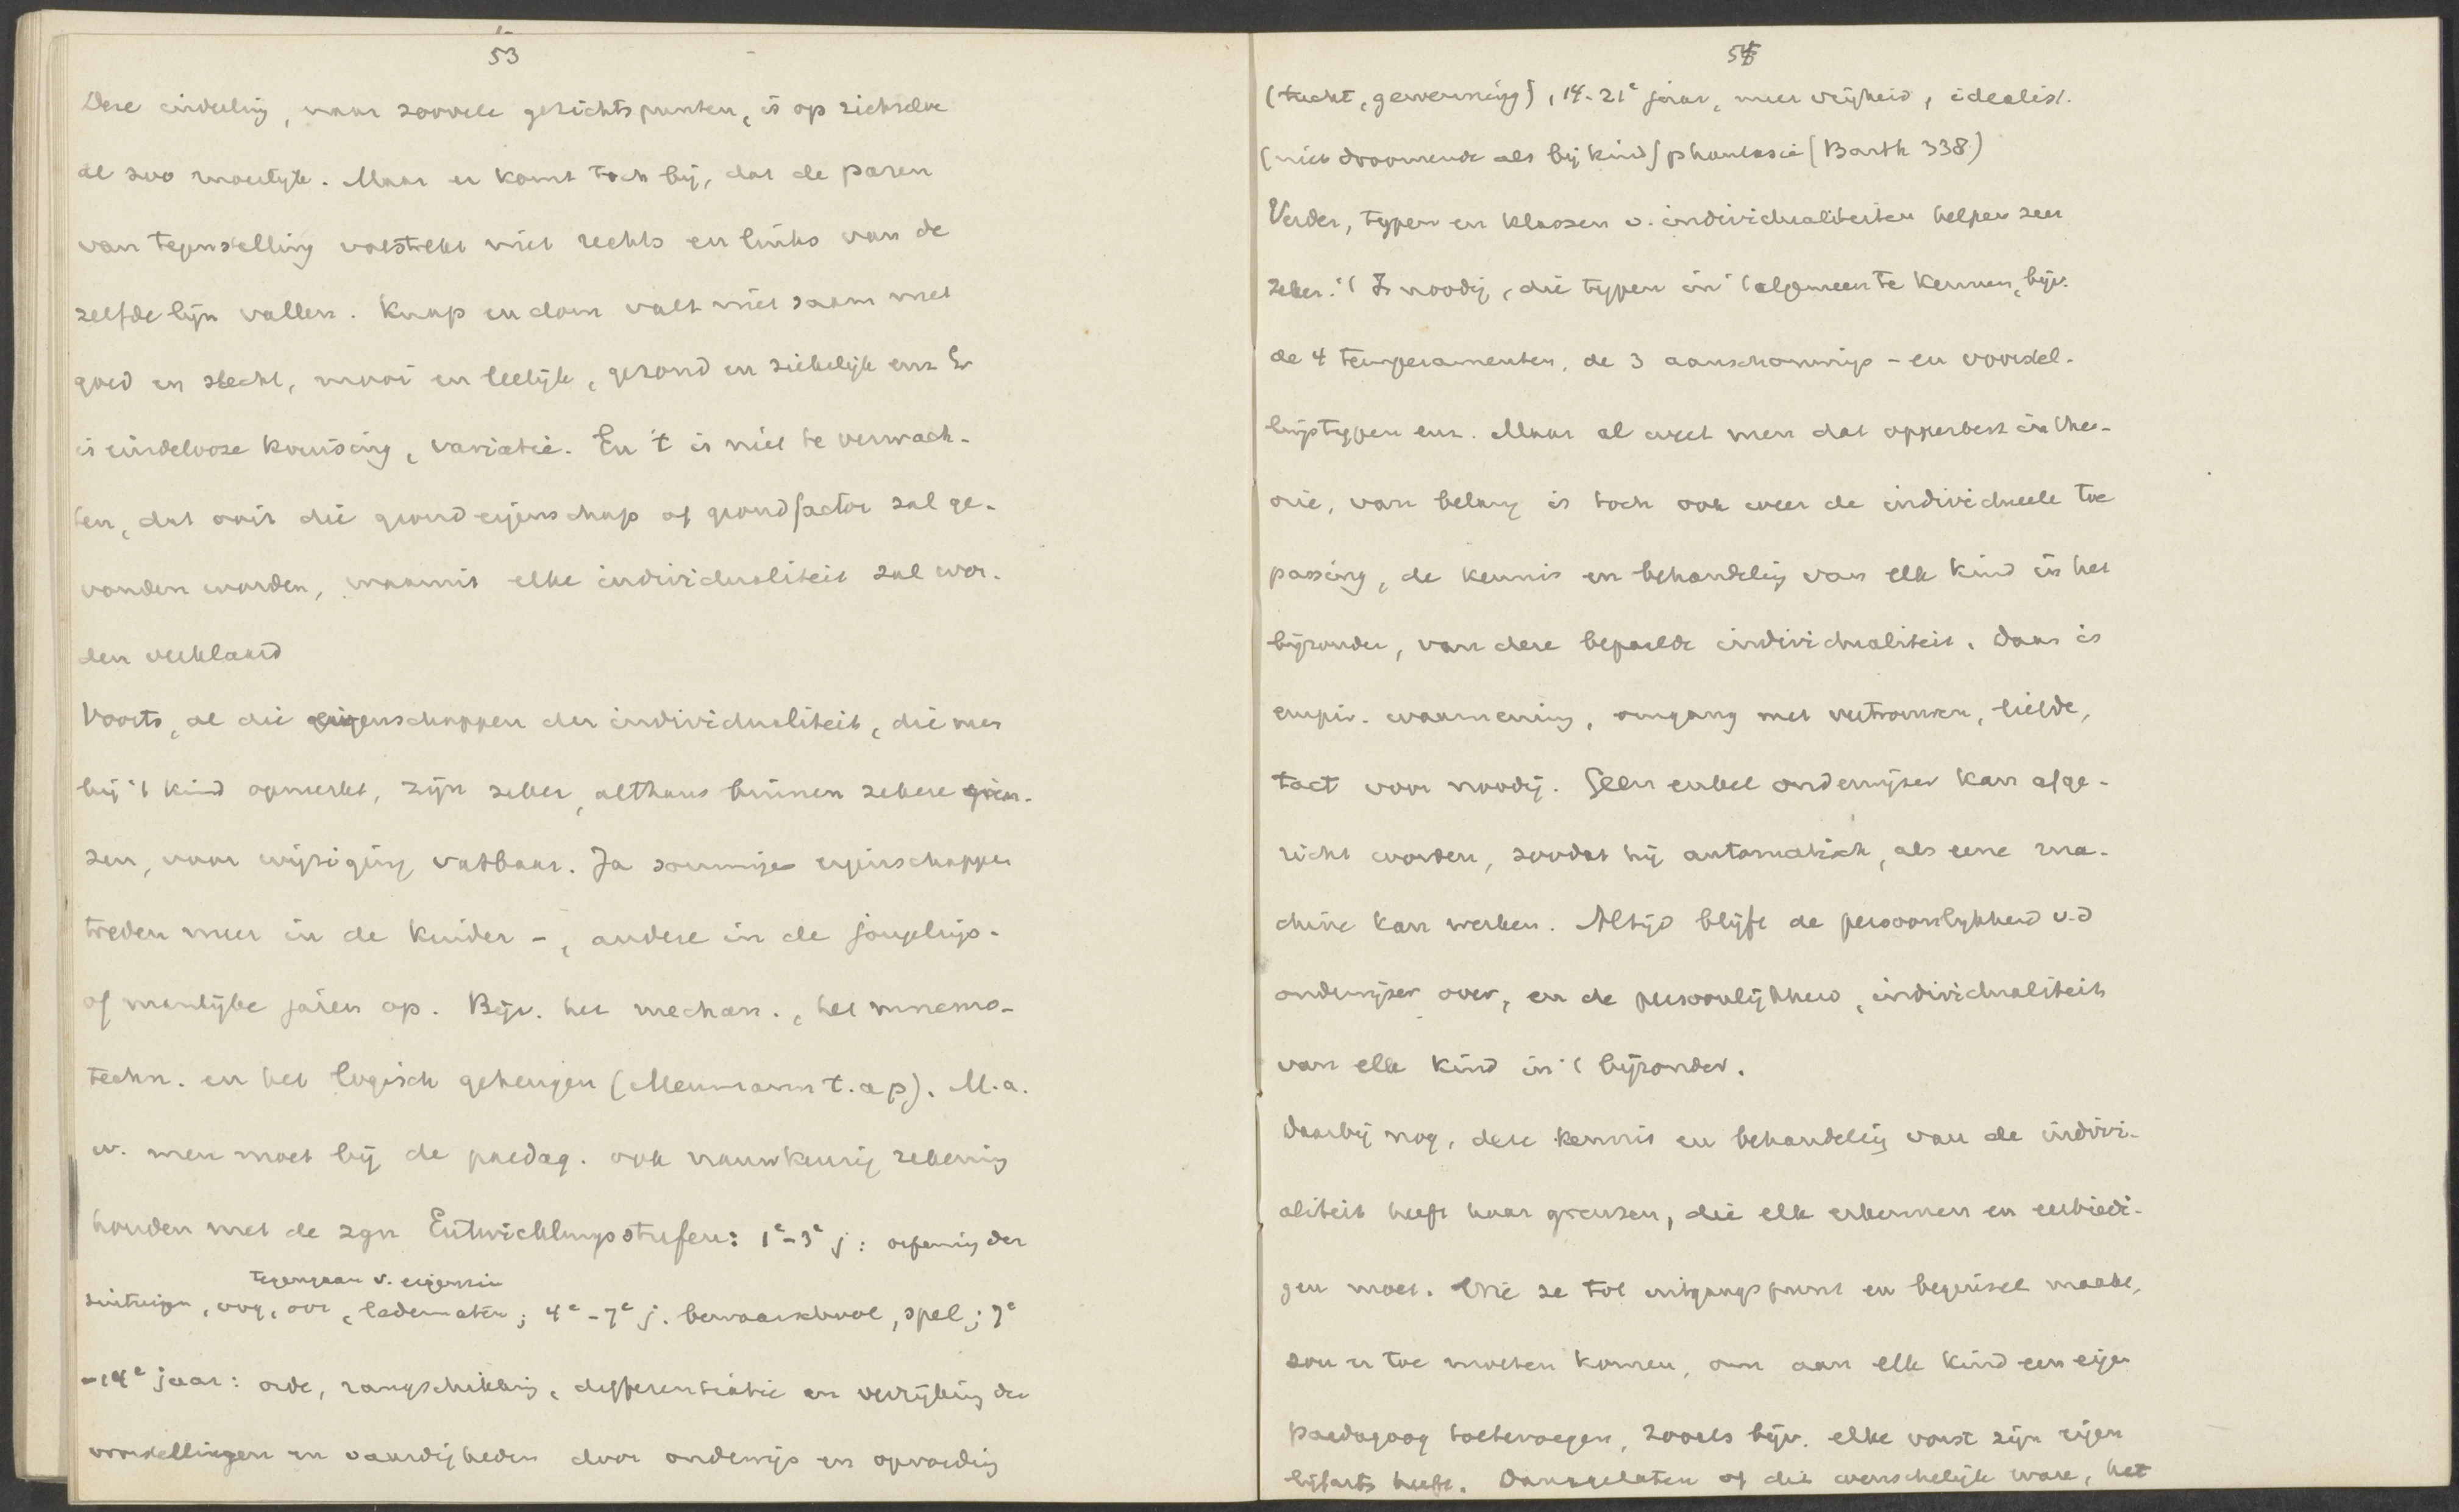 53
Deze indeeling, naar zoovele gezichtspunten, is op zichzelve
al zoo moeilyk. Maar er komt toch bij, dat de paren
van tegenstelling volstrekt niet rechts en links van de
zelfde lijn vallen. Knap en dom valt niet saam met
goed en slecht, mooi en leelijk, gezond en ziekelijk enz Er
is eindelooze kruising, variatie. En 't is niet te verwach-
ten, dat ooit die grondeigenschap of grondfactor zal ge-
vonden worden, waaruit elke individualiteit zal wor-
den verklaard
Voorts, al die eigenschappen der individualiteit, die men
bij 't kind opmerkt, zijn zeker, althans binnen zekere gren-
zen, voor wijziging vatbaar. Ja sommige eigenschappen
treden meer in de kinder-, andere in de jongelings-
of manlijke jaren op. Bijv. het mechan., het mnemo-
techn. en het logisch geheugen (Meumann t.a p). M.a.
w. men moet bij de paedag. ook nauwkeurig rekening
houden met de zgn Entwicklungsstufen: 1e-3e j: oefening der
tegengaan v. eigenzin
zintuigen, oog, oor, ledematen; 4e-7e j. bewaarschool, spel; 7e
-14e jaar: orde, rangschikking, differentiatie en verrijking der
voorstellingen en vaardigheden door onderwijs en opvoeding
54
(tucht, gewenning), 14-21e jaar, meer vrijheid, idealist.
(niet droomende als bij kind) phantasie (Barth 338)
Verder, typen en klassen v. individualiteiten helpen zeer
zeker. 't Is noodig, die typen in 't algemeen te kennen, bijv.
de 4 temperamenten, de 3 aanschouwings- en voorstel-
lingstypen enz. Maar al weet men dat opperbest in theo-
rie, van belang is toch ook weer de individueele toe
passing, de kennis en behandeling van elk kind in het
bijzonder, van deze bepaalde individualiteit. Daar is
empir. waarneming, omgang met vertrouwen, liefde,
tact voor noodig. Geen enkel onderwijzer kan afge-
richt worden, zoodat hij automatisch, als eene ma-
chine kan werken. Altijd blijft de persoonlykheid v.d
onderwijzer over, en de persoonlijkheid, individualiteit
van elk kind in 't bijzonder.
Daarbij nog, deze kennis en behandeling van de indivi-
aliteit heeft haar grenzen, die elk erkennen en eerbiedi-
gen moet. Wie ze tot uitgangspunt en beginsel maakt,
zou er toe moeten komen, om aan elk kind een eigen
paedagoog toetevoegen, zooals bijv. elke vorst zijn eigen
lijfarts heeft. Daargelaten of dit wenschelijk ware, het